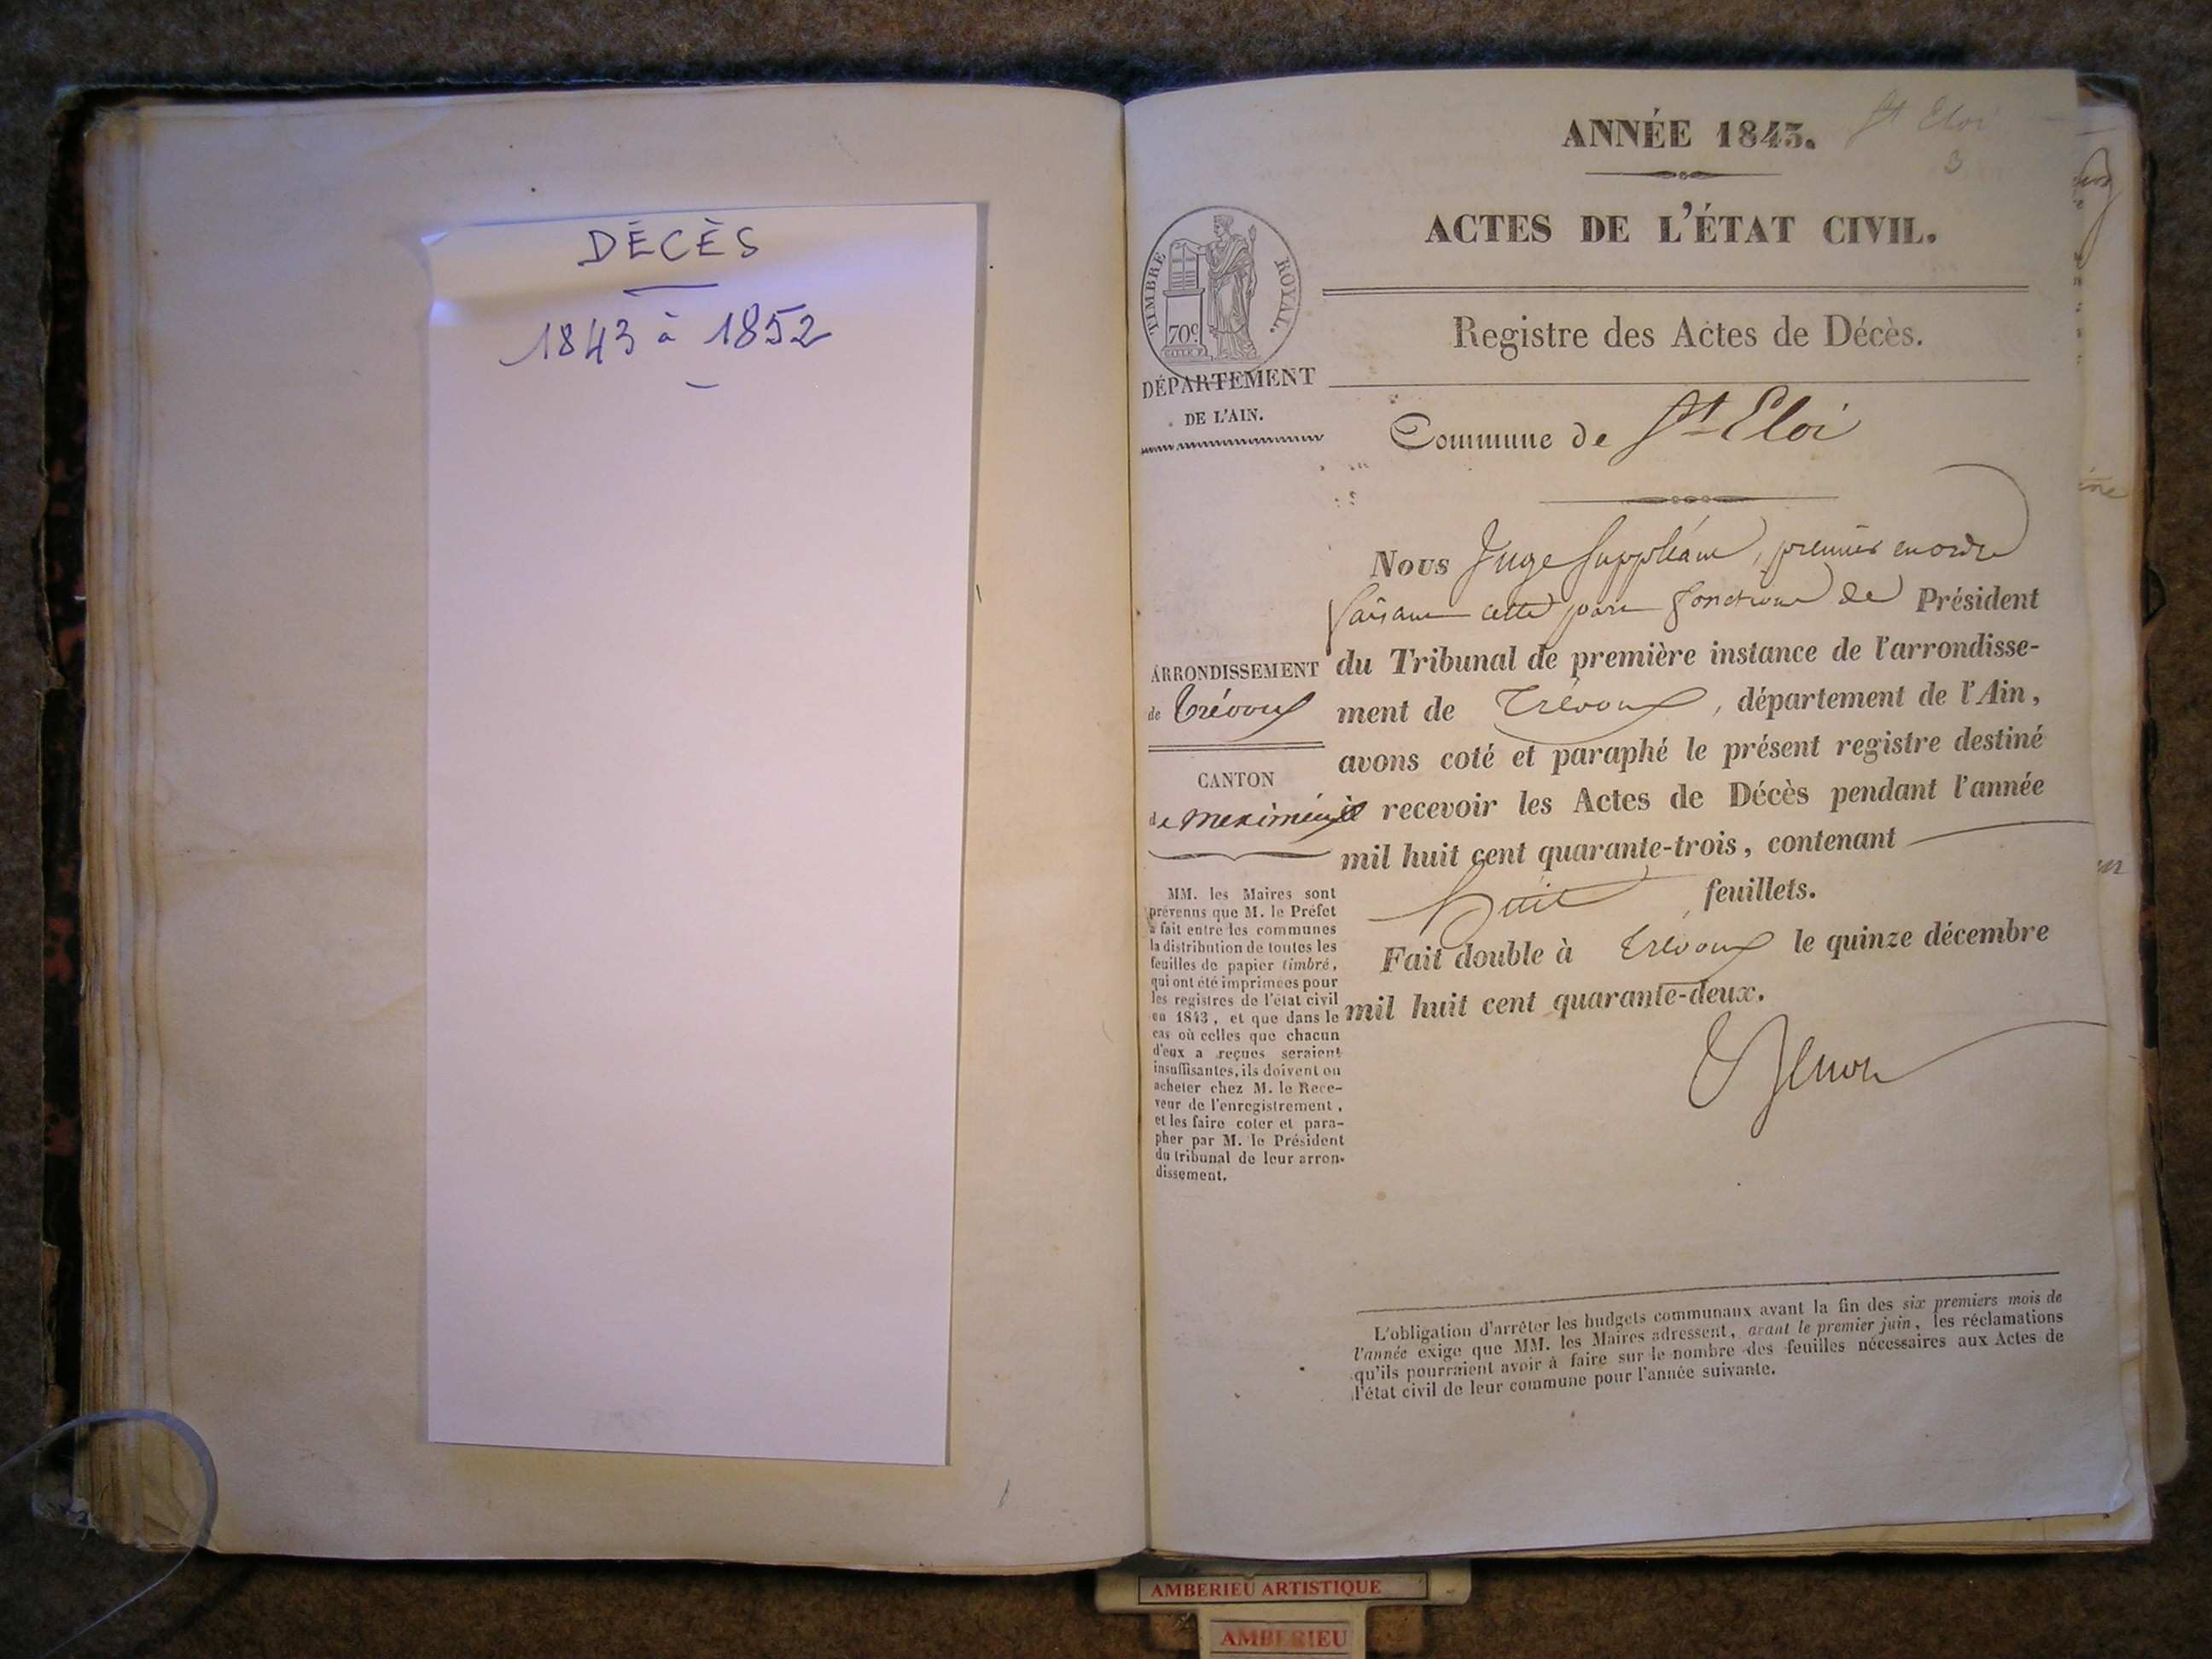 DÉCÈS
1843 à 1852
St Eloi
3
ANNÉE 1843.
ACTES DE L'ÉTAT CIVIL.
TIMBRE ROYAL.
70c
Registre des Actes de Décès.
DÉPARTEMENT
DE L'AIN.
Commune de St Eloi
Nous Juge suppléant, premier en ordre
faisant cette part fonctions de Président
du Tribunal de première instance de l'arrondisse-
ment de Trévoux, département de l'Ain,
avons coté et paraphé le présent registre destiné
à recevoir les Actes de Décès pendant l'année
mil huit cent quarante-trois, contenant
huit feuillets.
Fait double à Trévoux le quinze décembre
mil huit cent quarante-deux.
ARRONDISSEMENT
de Trévoux
CANTON
de Meximieux
MM. les Maires sont
prévenus que M. le Préfet
a fait entre les communes
la distribution de toutes les
feuilles de papier timbré,
qui ont été imprimées pour
les registres de l'état civil
en 1843, et que dans le
cas où celles que chacun
d'eux a reçues seraient
insuffisantes, ils doivent en
acheter chez M. le Rece-
veur de l'enregistrement,
et les faire coter et para-
pher par M. le Président
du tribunal de leur arron-
dissement.
L'obligation d'arrêter les budgets communaux avant la fin des six premiers mois de
l'année exige que MM. les Maires adressent, avant le premier juin, les réclamations
qu'ils pourraient avoir à faire sur le nombre des feuilles nécessaires aux Actes de
l'état civil de leur commune pour l'année suivante.
AMBERIEU ARTISTIQUE
AMBERIEU